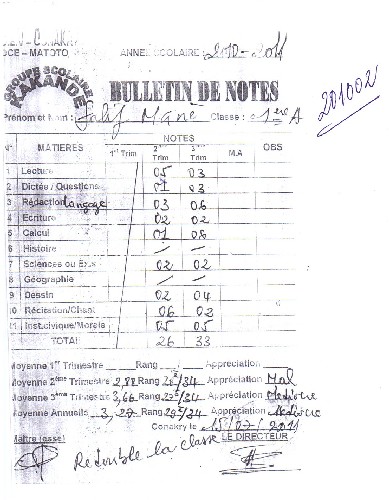 DCE - MATOTO ANNEE SCOLAIRE : 2010-2011
GROUPE SCOLAIRE KAKANDE
BULLETIN DE NOTES
201002
Prénom et Nom : Salif Mané Classe : 1ère A
N° MATIERES NOTES OBS
1er Trim 2ème Trim 3ème Trim M.A
1 Lecture 05 03
2 Dictée / Questions 01 03
3 Rédaction Langage 03 06
4 Ecriture 02 02
5 Calcul 01 06
6 Histoire / /
7 Sciences ou 02 02
8 Géographie / /
9 Dessin 02 04
10 Récitation/Chant 06 02
11 Inst.civique/Morale 05 05
TOTAL 26 33
Moyenne 1er Trimestre Rang Appréciation
Moyenne 2ème Trimestre 2,88 Rang /34 Appréciation Mal
Moyenne 3ème Trimestre 3,66 Rang /34 Appréciation Médiocre
Moyenne Annuelle 3,27 Rang /34 Appréciation Médiocre
Conakry le 15/07/2011
Maître (esse) LE DIRECTEUR
Redouble la classe